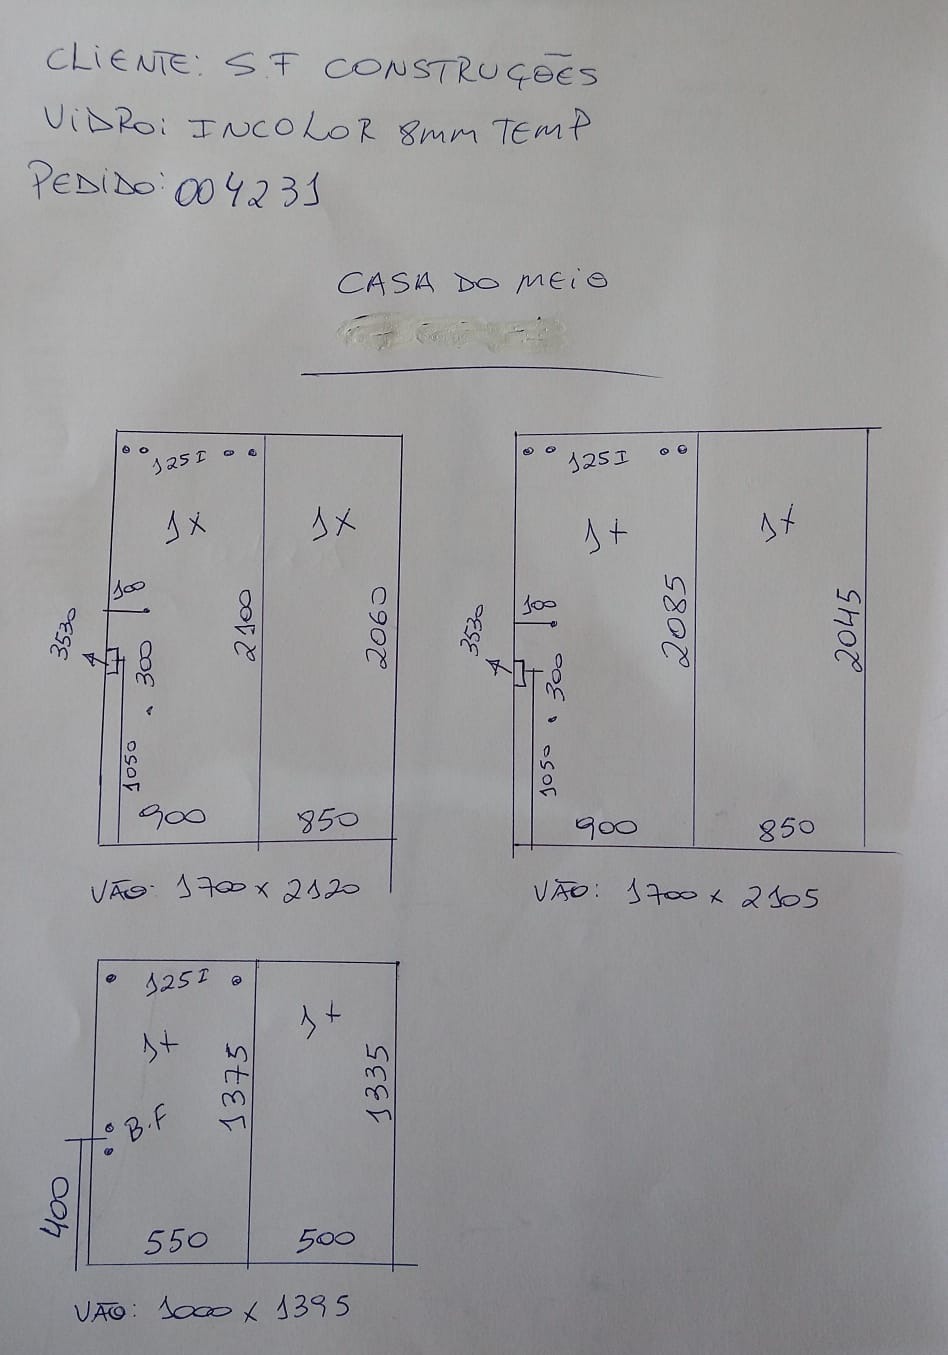 CLIENTE: S.F CONSTRUÇÕES
VIDRO: INCOLOR 8mm TEMP
PEDIDO: 004231
CASA DO MEIO
125I
1x
1x
100
3530
300
2100
2060
1050
900
850
VÃO: 1700 x 2120
125I
1+
1+
3530
300
2085
2045
1050
900
850
VÃO: 1700 x 2105
125I
1+
1+
1375
1335
B.F
400
550
500
VÃO: 1000 x 1395